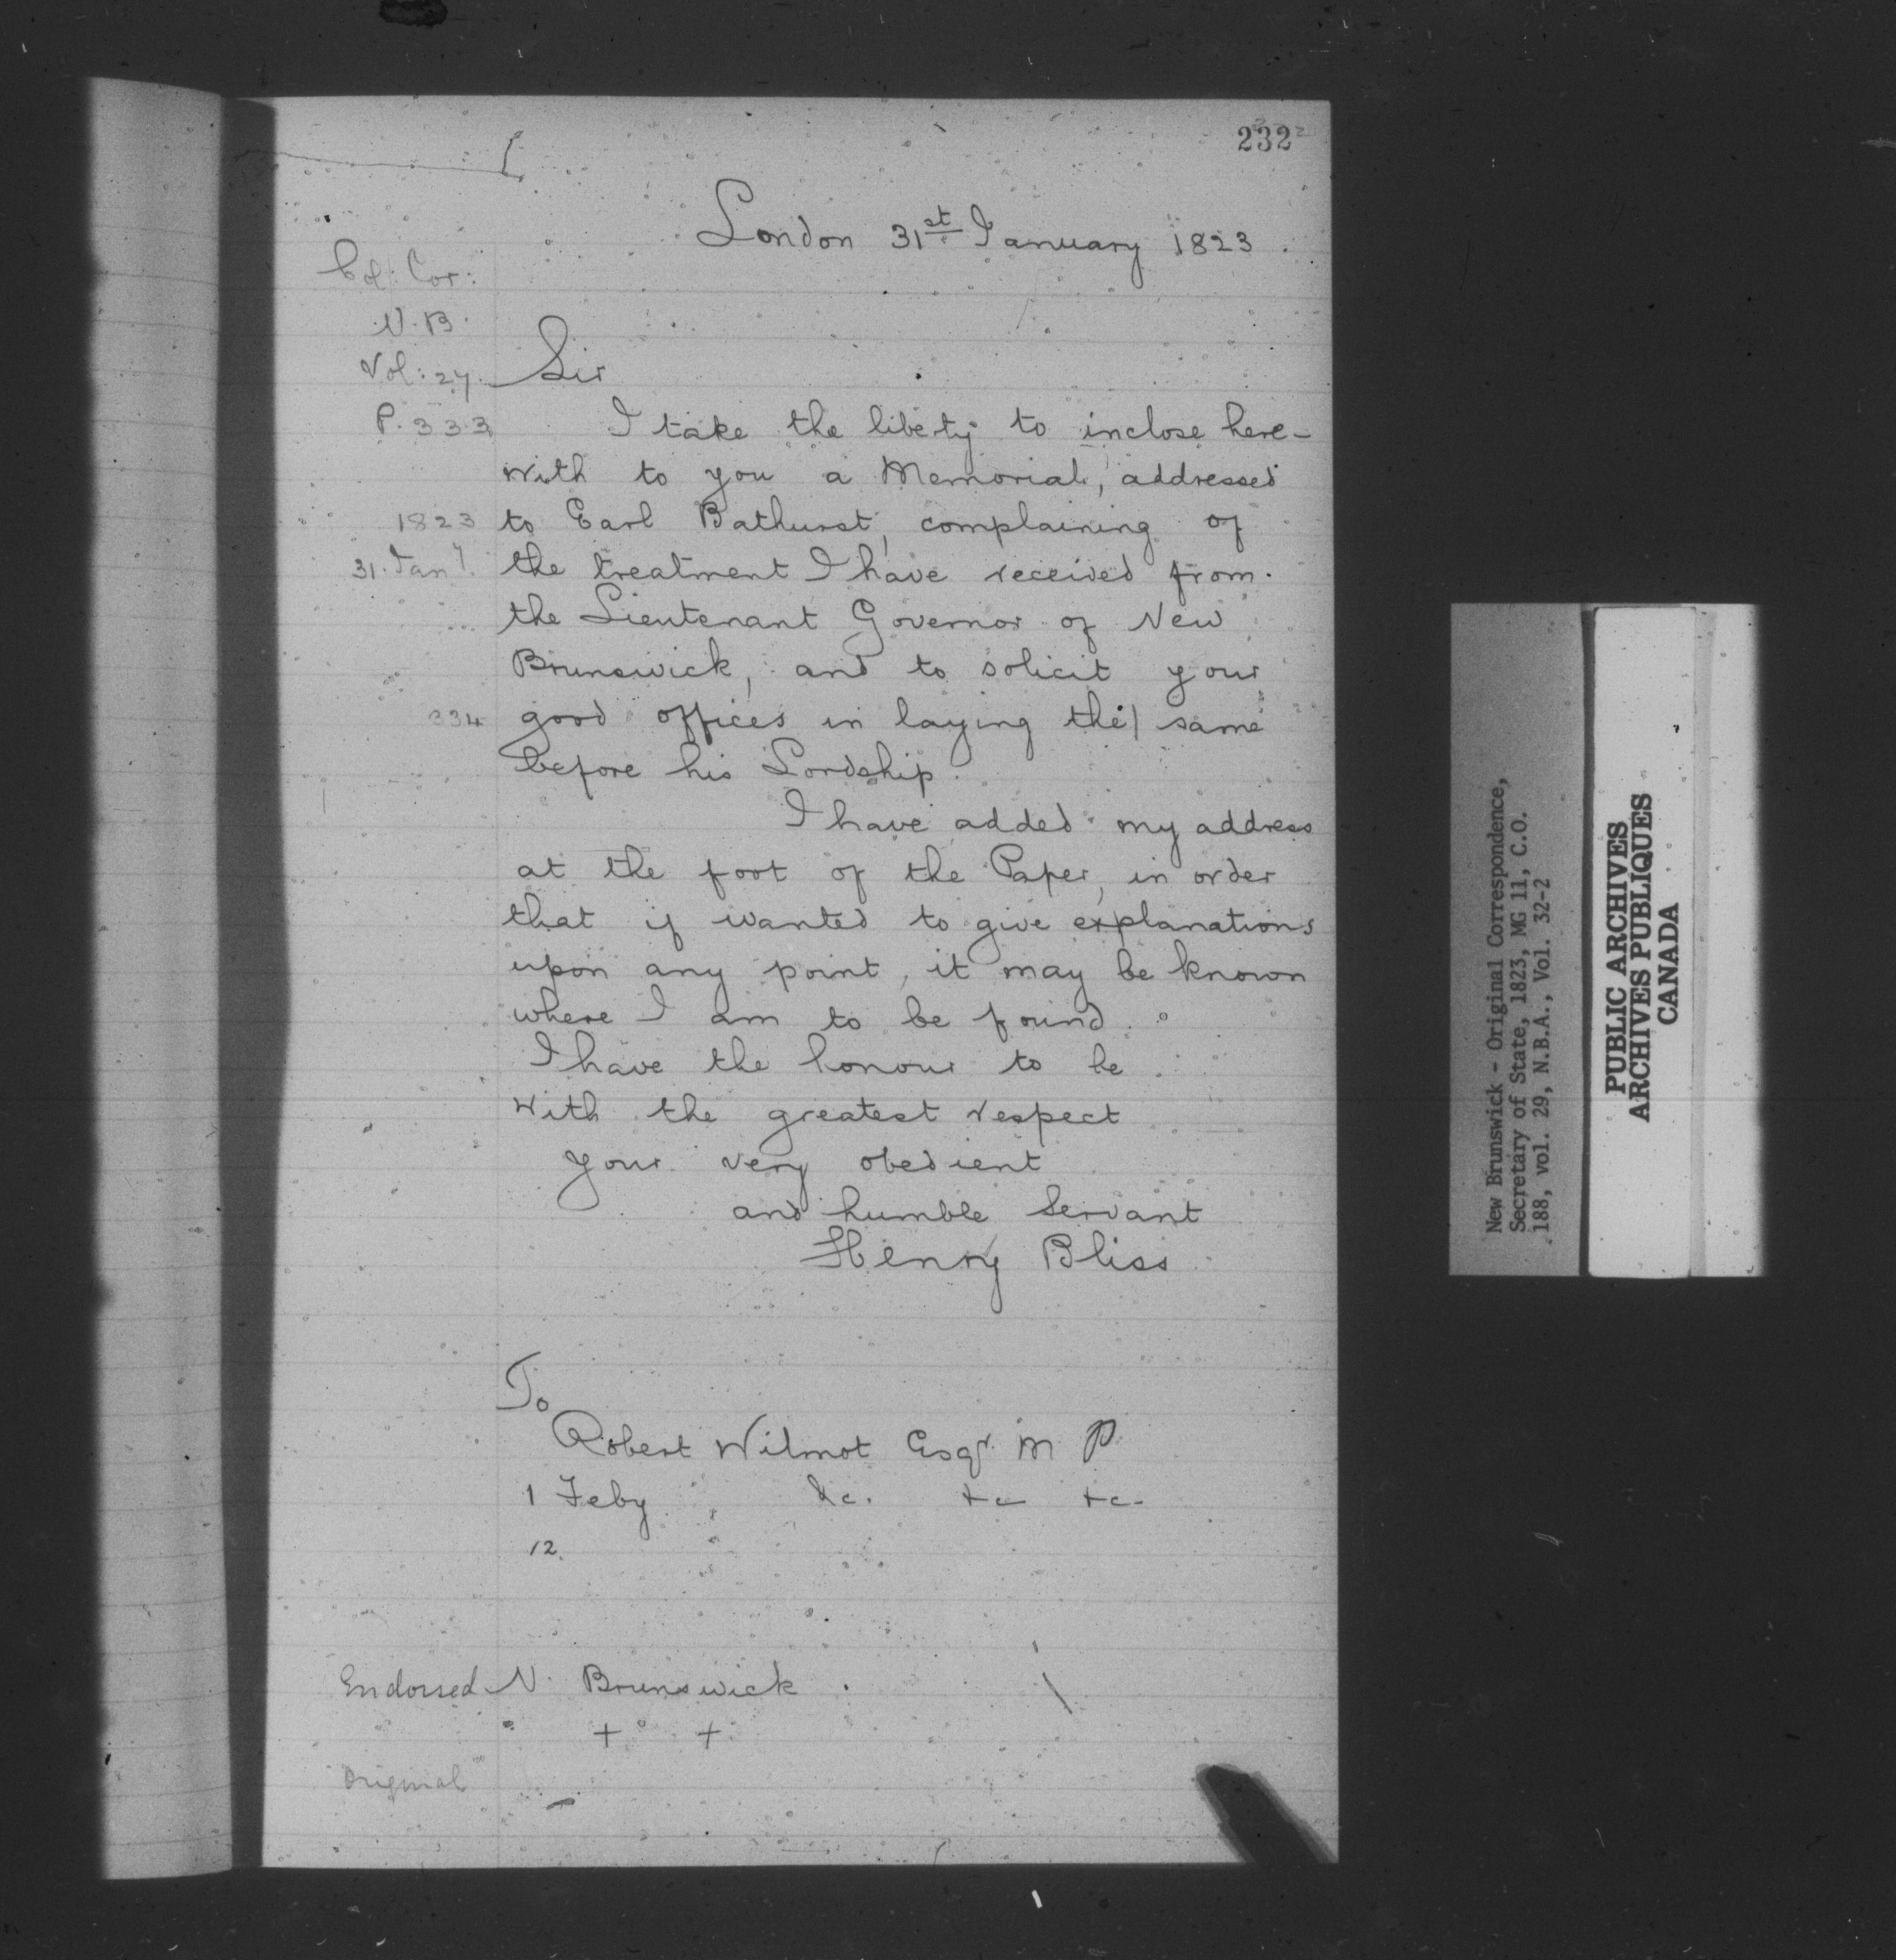 232
London 31st January 1823.
Col: Cor:
N.B.
Vol: 27.
P. 333
1823
31. Jany.
334
Sir
I take the liberty to inclose here-
with to you a Memorial, addressed
to Earl Bathurst, complaining of
the treatment I have received from
the Lieutenant Governor of New
Brunswick, and to solicit your
good offices in laying the| same
before his Lordship.
I have added my address
at the foot of the Paper, in order
that if wanted to give explanations
upon any point, it may be known
where I am to be found.
I have the honour to be
with the greatest respect
your very obedient
and humble Servant
Henry Bliss
To
Robert Wilmot Esqr. M P
1 Feby &c. &c &c-
12.
Endorsed N. Brunswick.
+ +
Original
New Brunswick - Original Correspondence,
Secretary of State, 1823, MG 11, C.O.
188, vol. 29, N.B.A., Vol. 32-2
PUBLIC ARCHIVES
ARCHIVES PUBLIQUES
CANADA